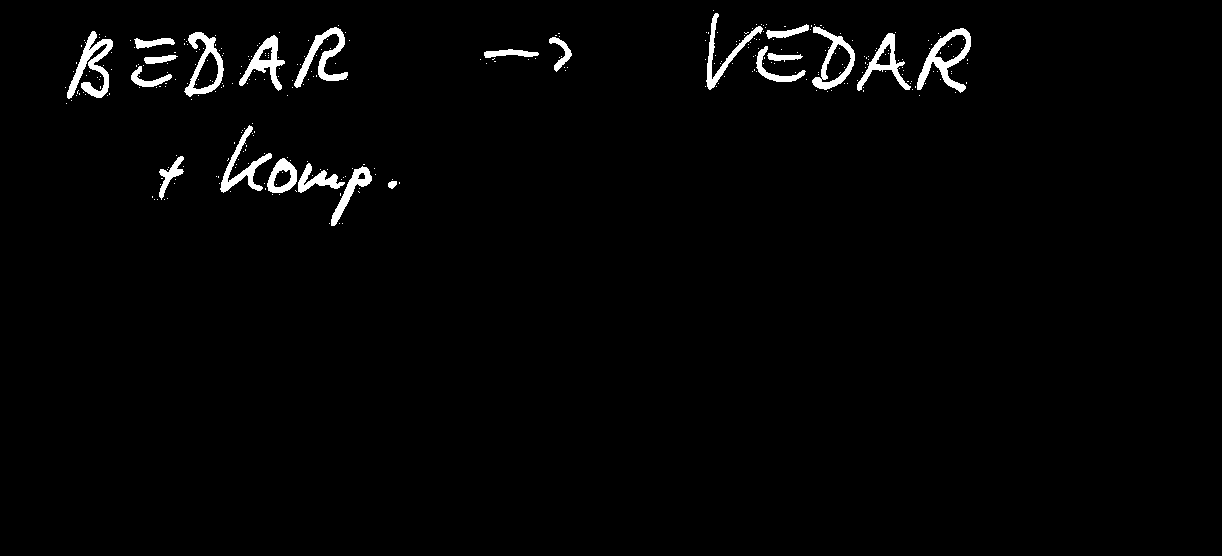 BEDAR → VEDAR
+ Komp.